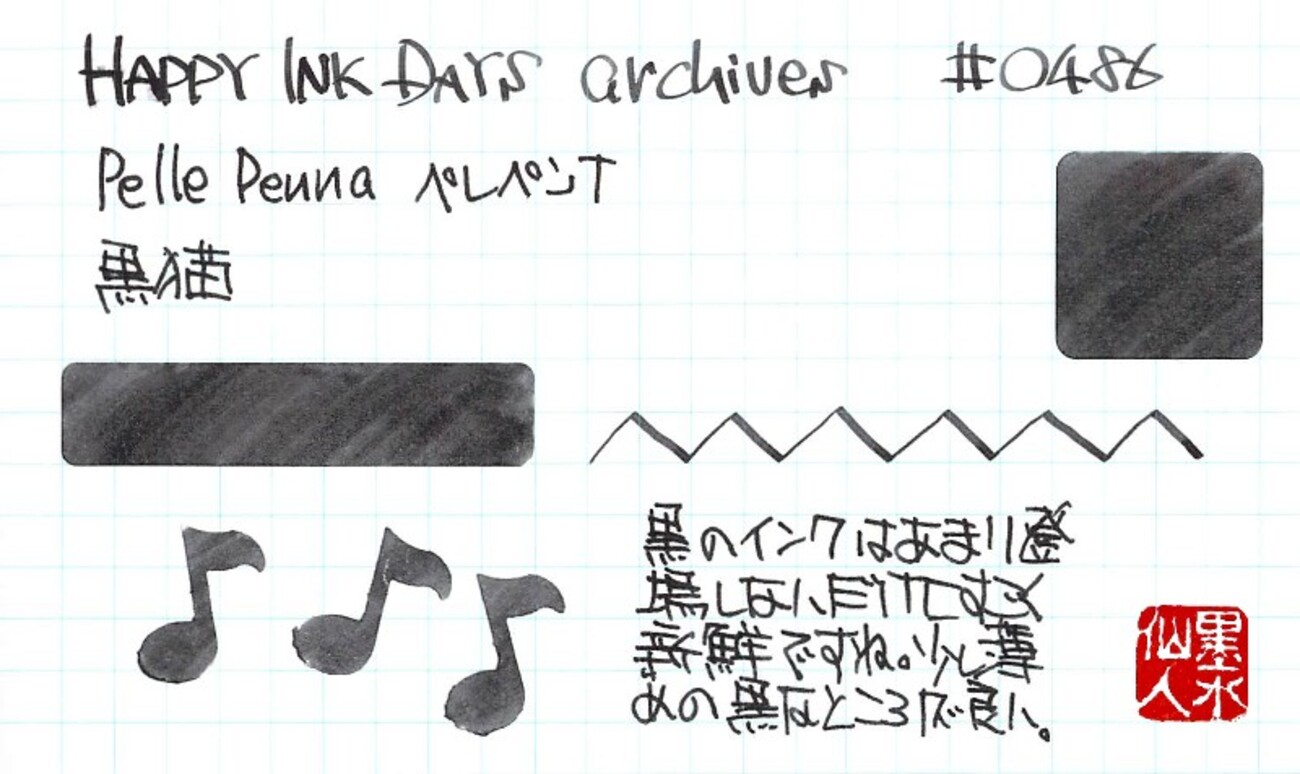 HAPPY INK DAYS archives #0486
Pelle Penna ペレペンナ
黒猫
黒のインクはあまり登
場しないだけにすごく
新鮮ですね。少し薄
めの黒なところが良い。
墨水
仙人